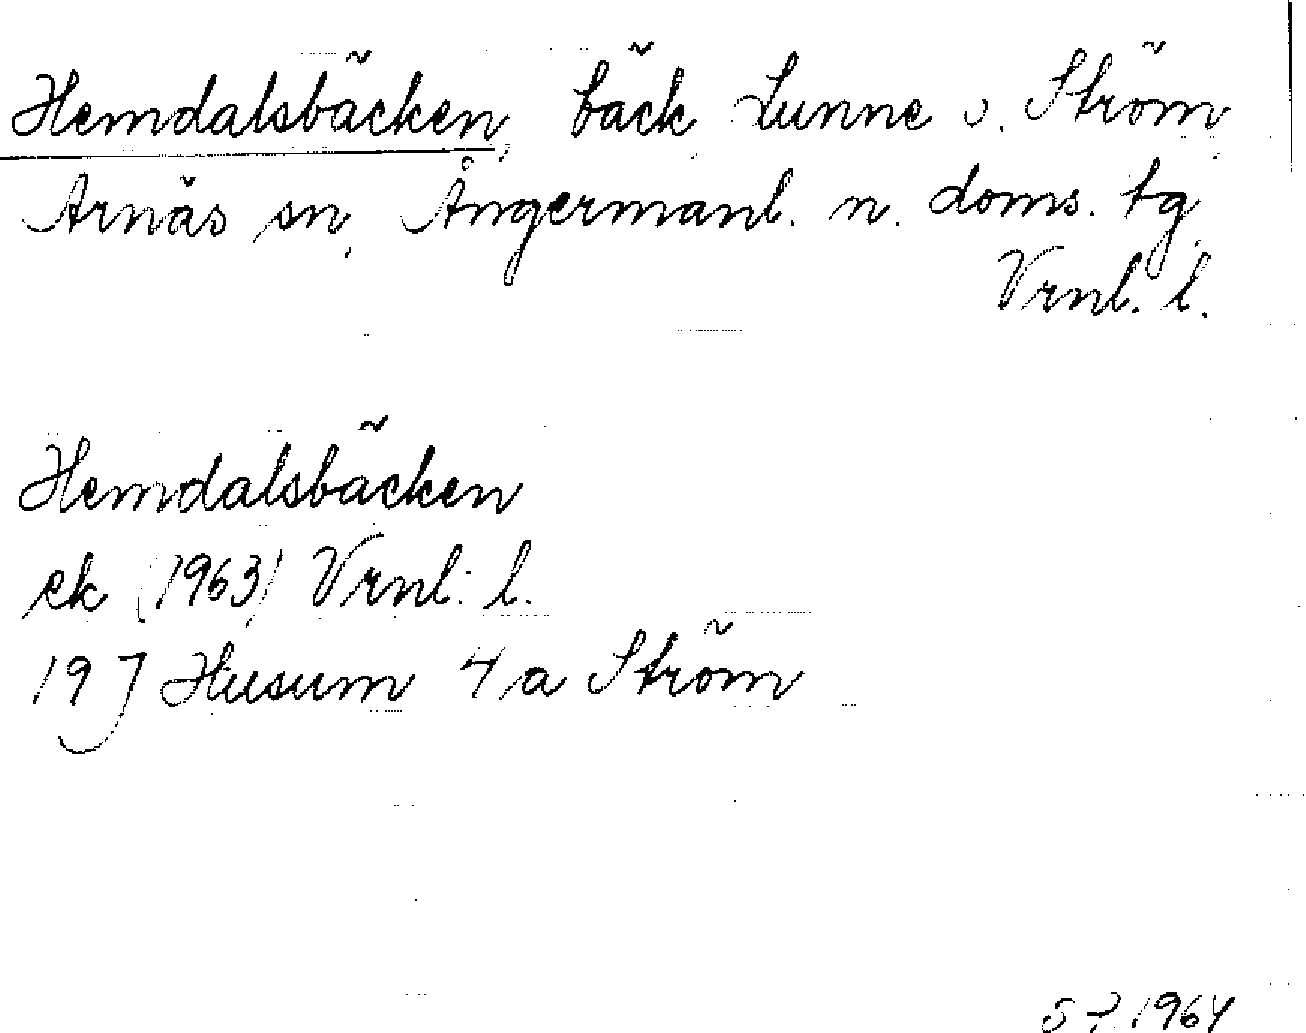 Hemdalsbäcken, bäck, Lunne o. Ström,
Arnäs sn, Ångermanl. n. doms. tg,
Vrnl. l.
Hemdalsbäcken
ek (1963) Vrnl. l.
19 J Husum 4 a Ström
1964